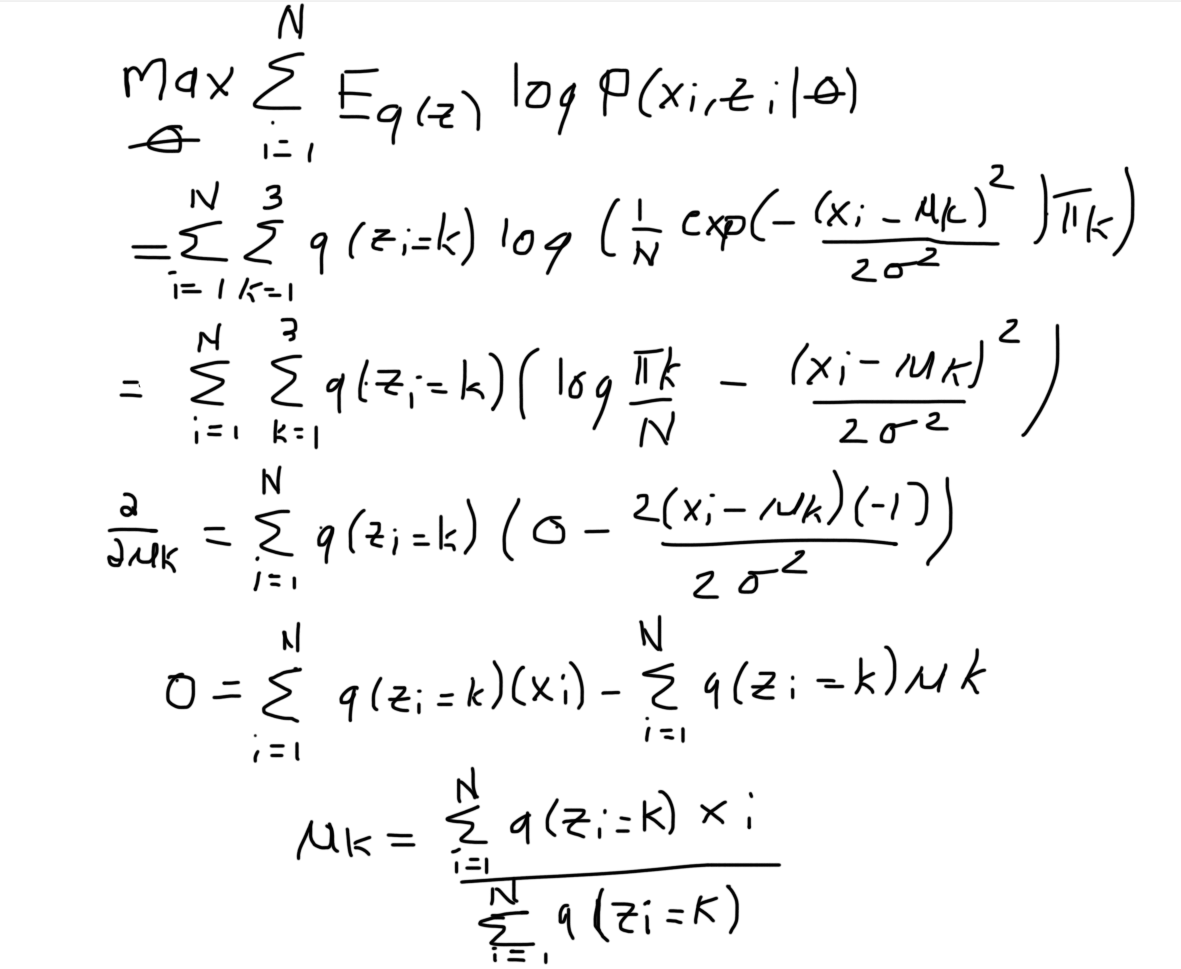 max_θ Σ_{i=1}^{N} E_{q(z)} log P(x_i, z_i | θ)
= Σ_{i=1}^{N} Σ_{k=1}^{3} q(z_i=k) log (1/N exp(- (x_i - μ_k)^2 / 2σ^2) π_k)
= Σ_{i=1}^{N} Σ_{k=1}^{3} q(z_i=k) (log π_k/N - (x_i - μ_k)^2 / 2σ^2)
∂/∂μ_k = Σ_{i=1}^{N} q(z_i=k) (0 - 2(x_i - μ_k)(-1) / 2σ^2)
0 = Σ_{i=1}^{N} q(z_i=k)(x_i) - Σ_{i=1}^{N} q(z_i=k) μ_k
μ_k = Σ_{i=1}^{N} q(z_i=k) x_i / Σ_{i=1}^{N} q(z_i=k)